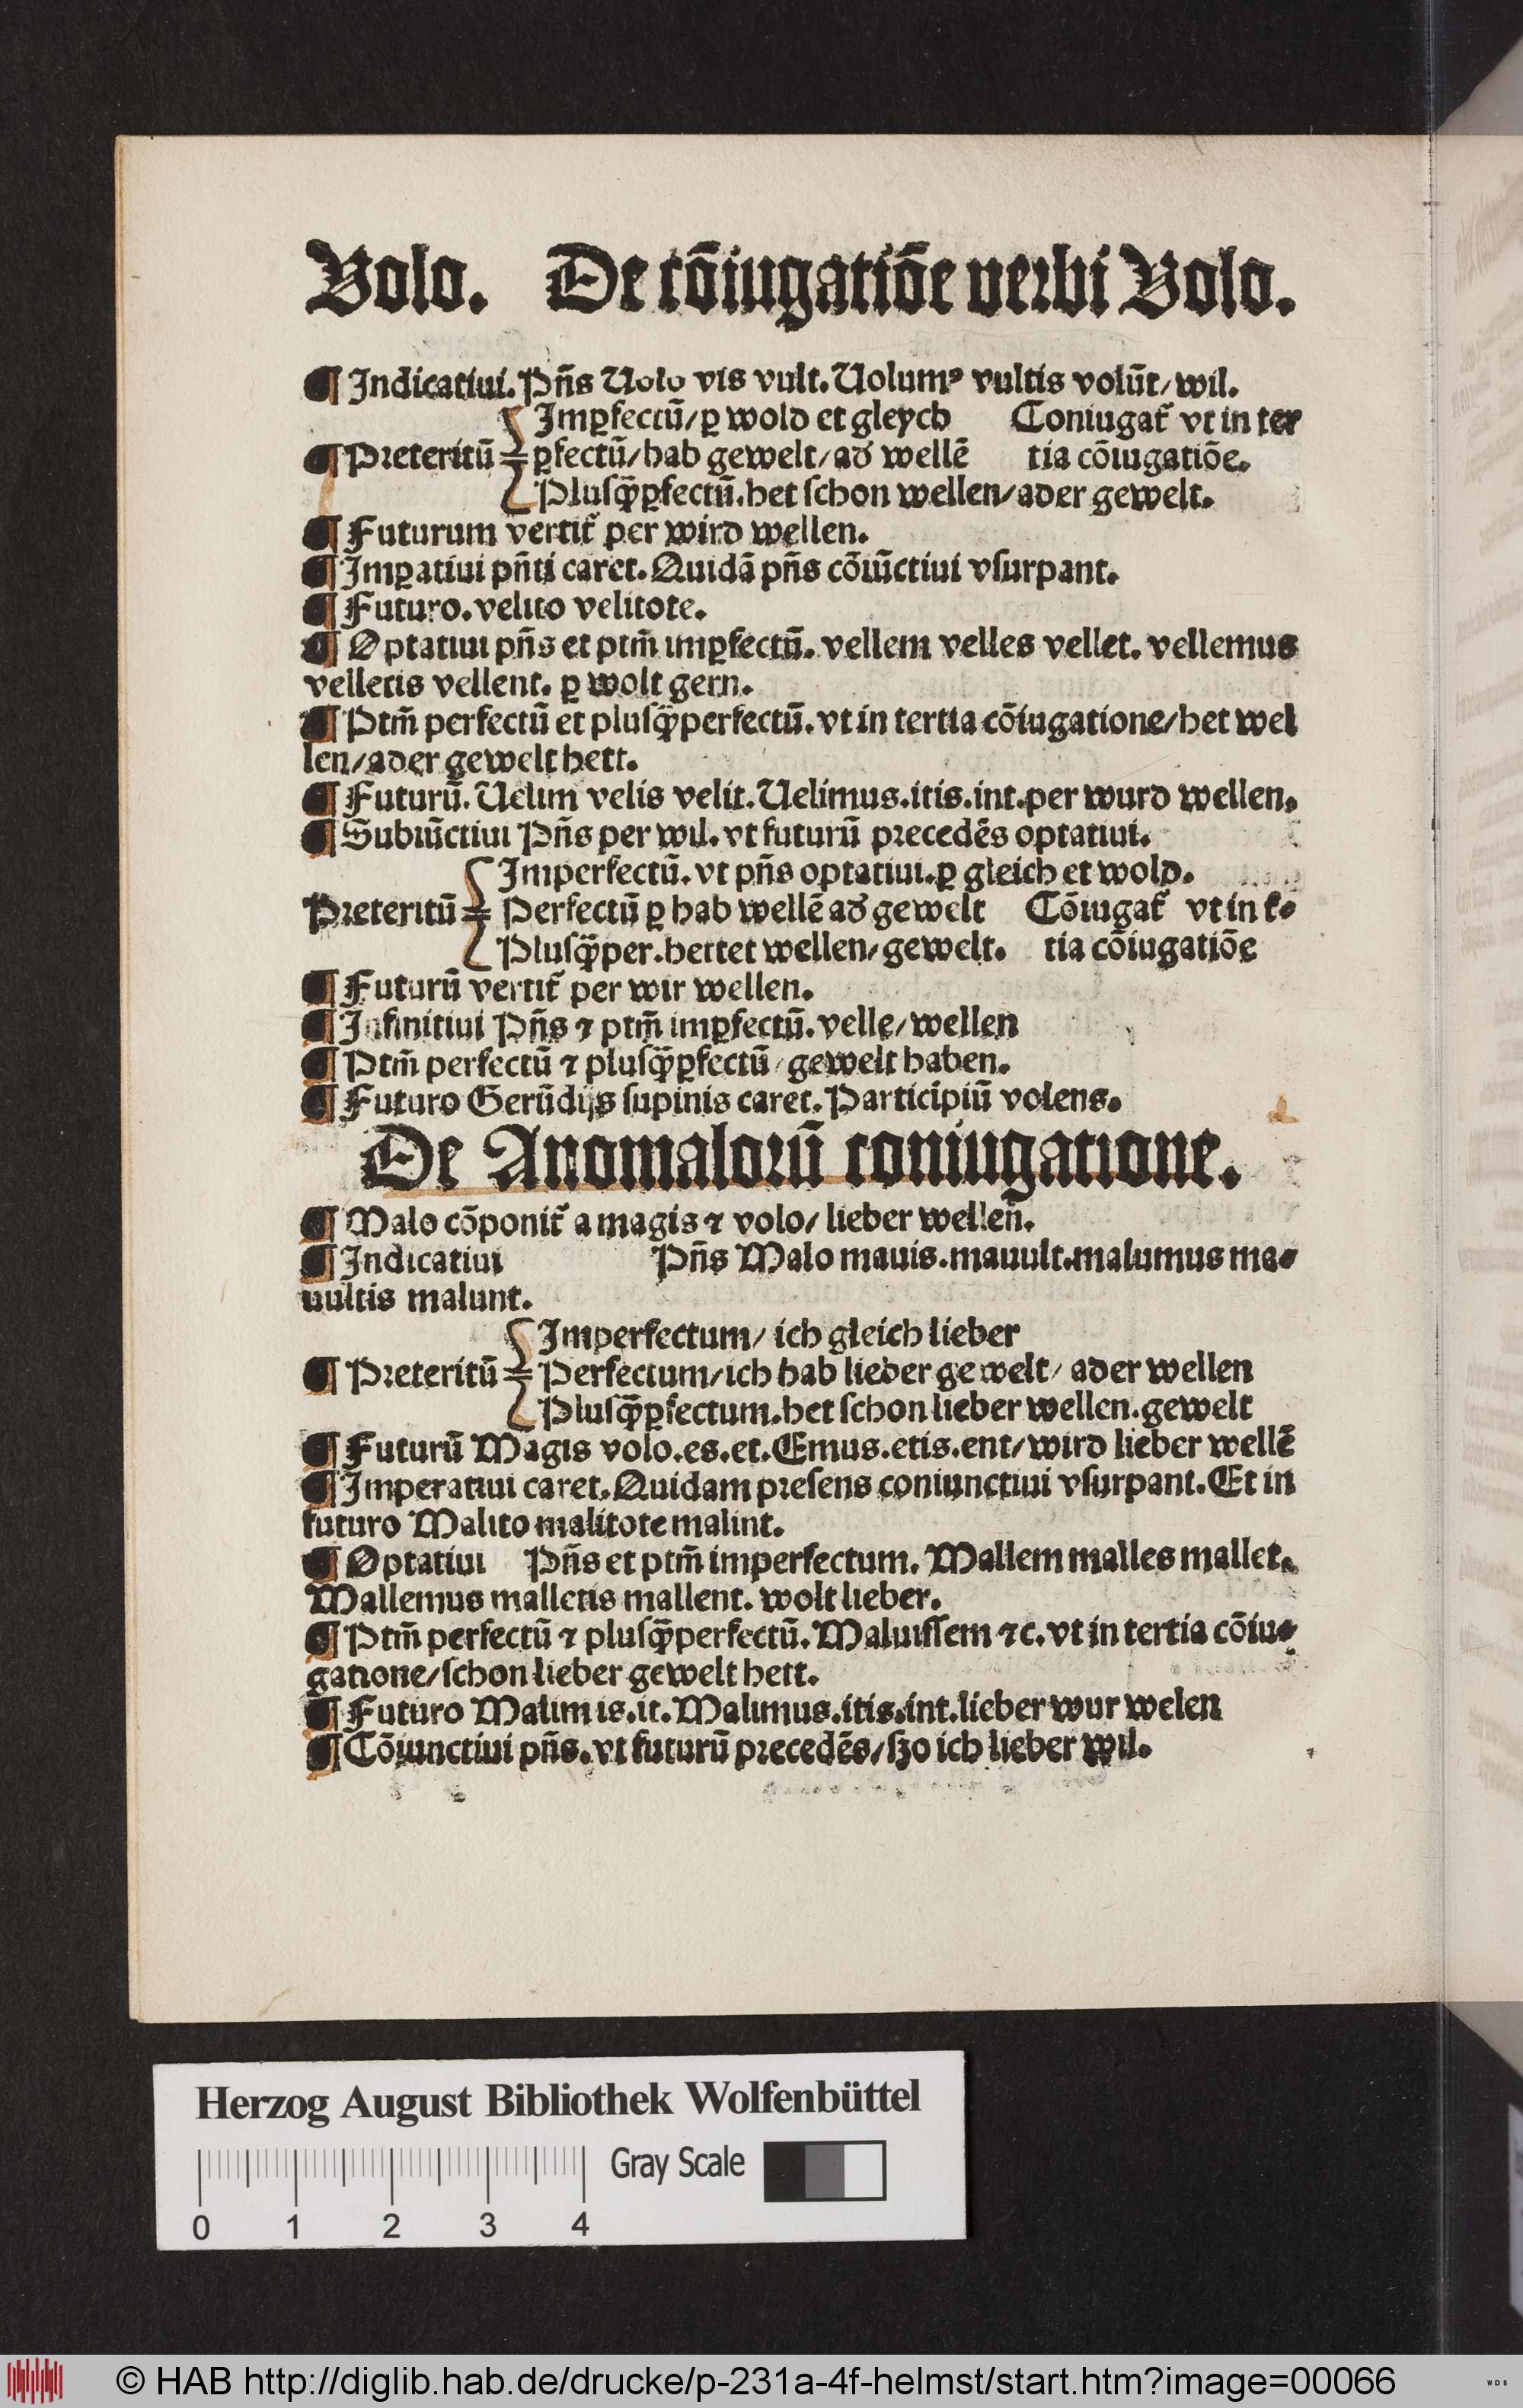 Volo. De cõiugatiõe verbi Volo.
¶ Indicatiui. Pñs Uolo vis vult. Uolumꝰ vultis volũt/ wil.
Imꝑfectũ/ ꝑ wold et gleych Coniugat̃ vt in ter
¶ Preteritũ ꝑfectũ/ hab gewelt/ ad̕ wellẽ tia cõiugatiõe.
Plusq̃ꝑfectũ. het schon wellen/ ader gewelt.
¶ Futurum vertit̃ per wird wellen.
¶ Imꝑatiui pñti caret. Quidã pñs cõiũctiui vsurpant.
¶ Futuro. velito velitote.
¶ Optatiui pñs et ptm̃ imꝑfectũ. vellem velles vellet. vellemus
velletis vellent. ꝑ wolt gern.
¶ Ptm̃ perfectũ et plusq̃perfectũ. vt in tertia cõiugatione/ het wel
len/ ader gewelt hett.
¶ Futurũ. Uelim velis velit. Uelimus. itis. int. per wurd wellen.
¶ Subiũctiui Pñs per wil. vt futurũ precedẽs optatiui.
Imperfectũ. vt pñs optatiui. ꝑ gleich et wold.
Preteritũ Perfectũ ꝑ hab wellẽ ad̕ gewelt Cõiugat̃ vt in t̕
Plusq̃per. hettet wellen/ gewelt. tia cõiugatiõe
¶ Futurũ vertit̃ per wir wellen.
¶ Infinitiui Pñs ⁊ ptm̃ imꝑfectũ. velle/ wellen
¶ Ptm̃ perfectũ ⁊ plusq̃ꝑfectũ/ gewelt haben.
¶ Futuro Gerũdijs supinis caret. Participiũ volens.
De Anomalorũ coniugatione.
¶ Malo cõponit̃ a magis ⁊ volo/ lieber wellen̄.
¶ Indicatiui Pñs Malo mauis. mauult. malumus ma⸗
uultis malunt.
Imperfectum/ ich gleich lieber
¶ Preteritũ Perfectum/ ich hab lieber gewelt/ ader wellen
Plusq̃ꝑfectum. het schon lieber wellen. gewelt
¶ Futurũ Magis volo. es. et. Emus. etis. ent/ wird lieber wellẽ
¶ Imperatiui caret. Quidam presens coniunctiui vsurpant. Et in
futuro Malito malitote malint.
¶ Optatiui Pñs et ptm̃ imperfectum. Mallem malles mallet.
Mallemus malletis mallent. wolt lieber.
¶ Ptm̃ perfectũ ⁊ plusq̃perfectũ. Maluissem ⁊c. vt in tertia cõiu⸗
gatione/ schon lieber gewelt hett.
¶ Futuro Malim is. it. Malimus. itis. int. lieber wur welen
¶ Cõiunctiui pñs. vt futurũ precedẽs/ szo ich lieber wil.
Herzog August Bibliothek Wolfenbüttel
Gray Scale
0 1 2 3 4
© HAB http://diglib.hab.de/drucke/p-231a-4f-helmst/start.htm?image=00066
WDB